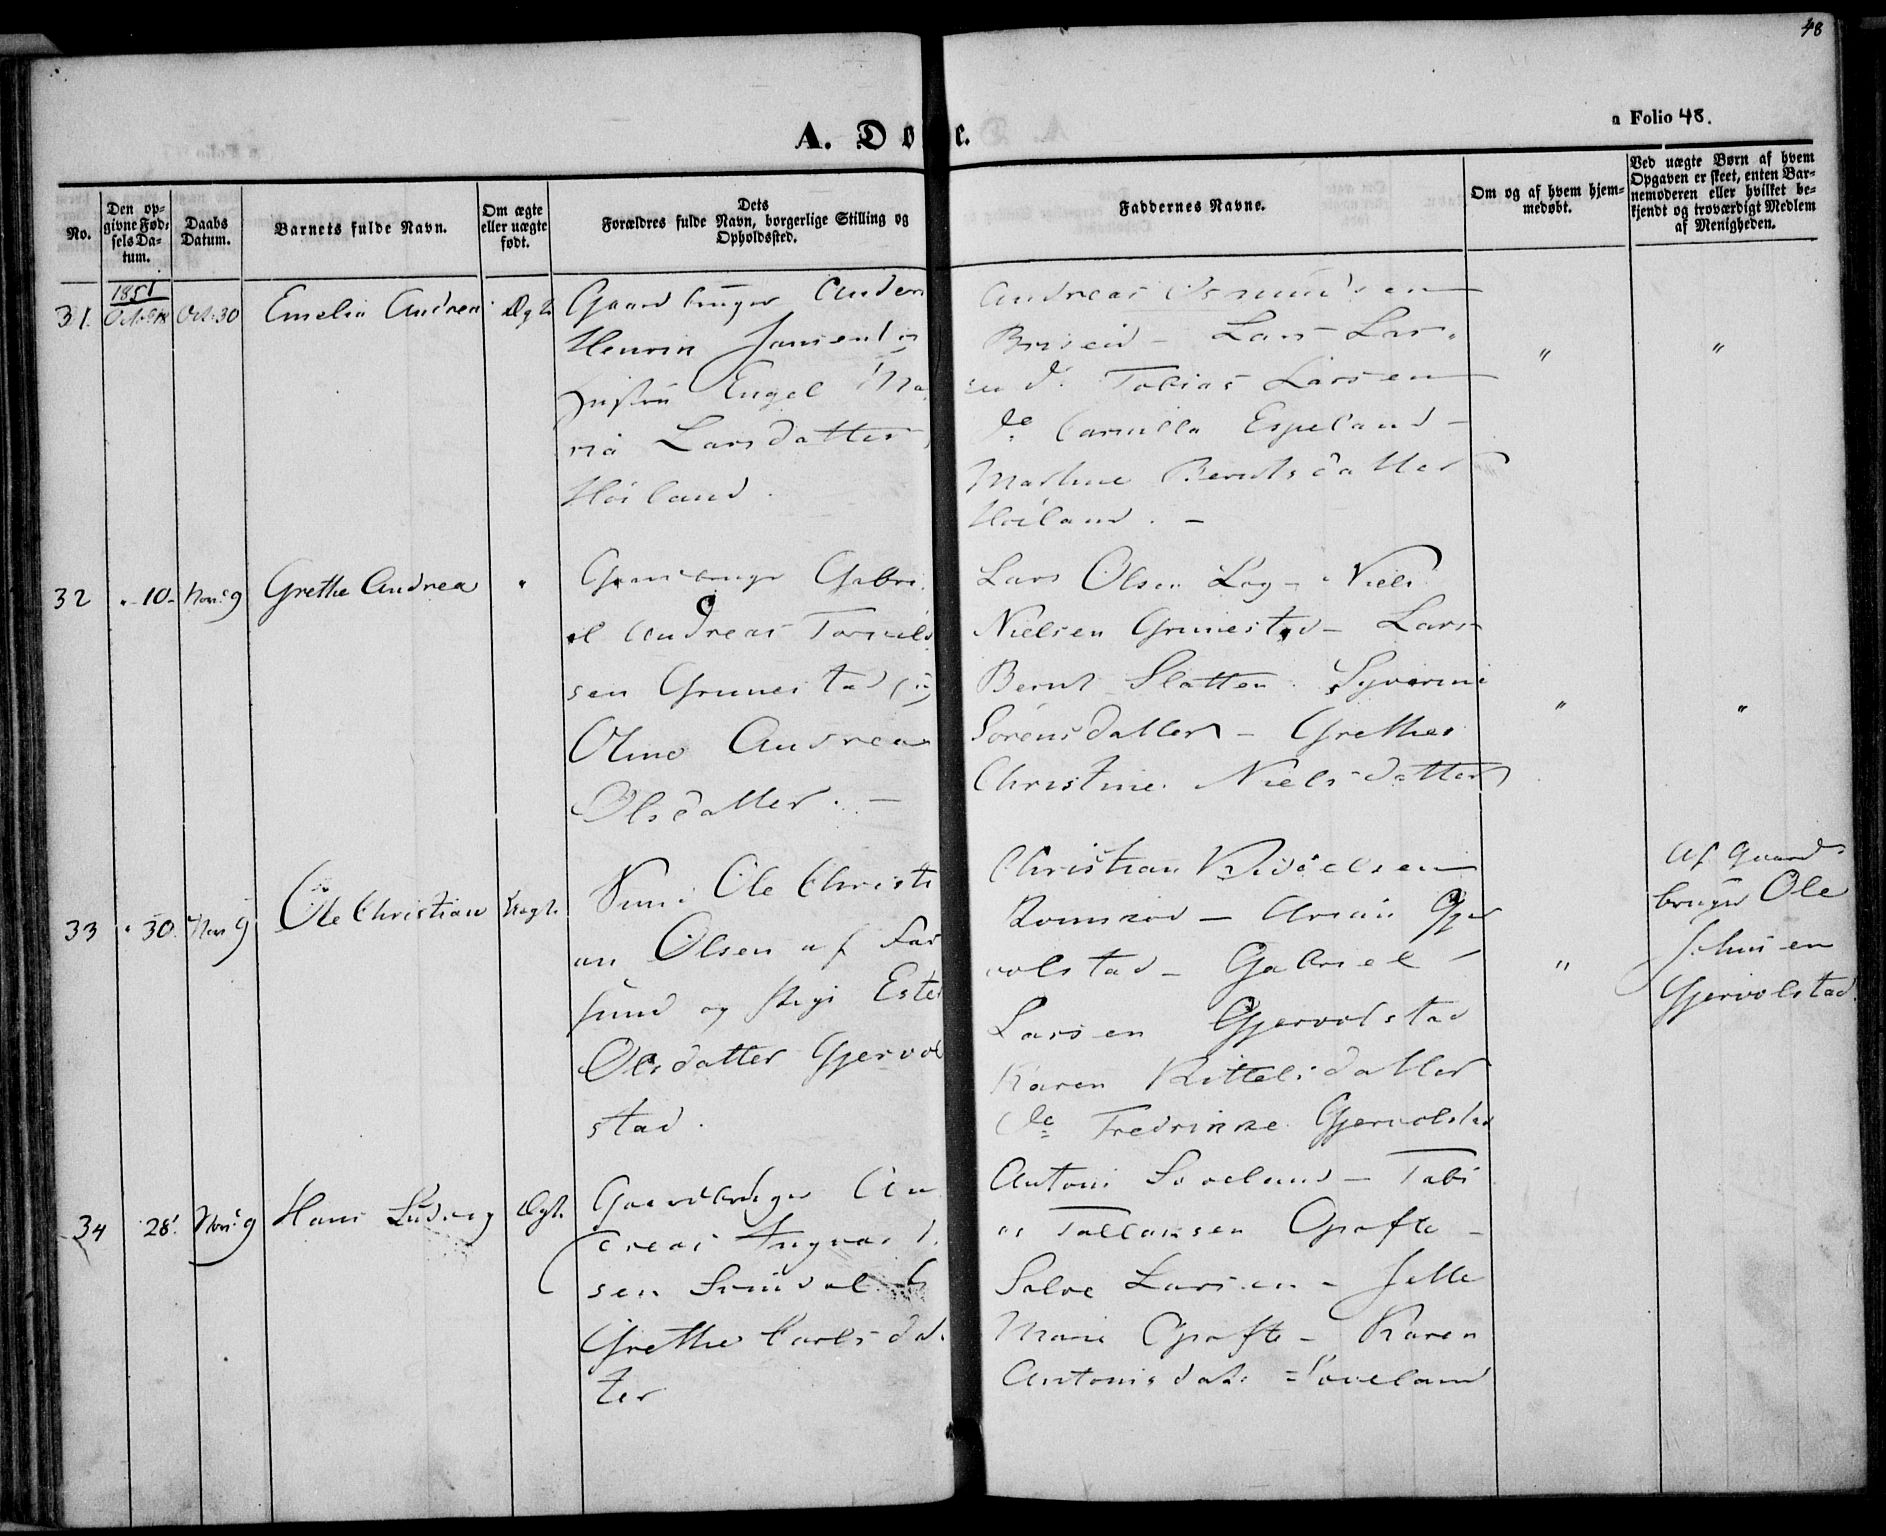 48
a Folio 48.
A. Dø e.
No.
Den op-
givne Fød-
sels Da-
tum.
Daabs
Datum.
Barnets fulde Navn.
Om ægte
eller uægte
født.
Dets
Forældres fulde Navn, borgerlige Stilling og
Opholdssted.
Faddernes Navne.
Om og af hvem hjem-
medøbt.
Ved uægte Børn af hvem
Opgaven er skeet, enten Bar-
nemoderen eller hvilket be-
kjendt og troværdigt Medlem
af Menigheden.
1851
31. Oct. 30 Emelia Andrea Ægte
Gaardbruger Anders
Henrik Jansen og
Hustru Engel Ma
ria Larsdatter
Höiland.
Andreas Osmundsen
Briseid - Lars Lar-
sen do Tobias Larsen
do Camilla Espeland -
Marthine Berntsdatter
Höiland. -
" "
32 " 10 Nov. 9 Grethe Andrea "
Gaardbruger Gabri
el Andreas
sen Grunestad og
Oline Andrea
Olsdatter. -
Lars Olsen - Niels
Nielsen Grunestad - Lars
Bernt Slatten
Sörensdatter - Grethe
Christine Nielsdatter
" "
33 " 30. Nov 9 Ole Christian Uægte
Ole Christi
an Olsen af Far
sund og Pige Ester
Olsdatter Gjervol
stad.
Christian
- Gjer
volstad - Gabriel
Larsen Gjervolstad
Karen Kittelsdatter
do Fredrikke Gjervolstad
"
Af Gaard
bruger Ole
Gjervolstad.
34 28. Nov. 9 Hans Ludvig Ægte
Gaardbruger An
dreas Ingvald
sen
Grethe Carlsdat
ter
Antoni Loveland - Tobi
as Tallaksen Opofte -
Salve Larsen -
Marie Opofte - Karen
Antonisdatr Loveland